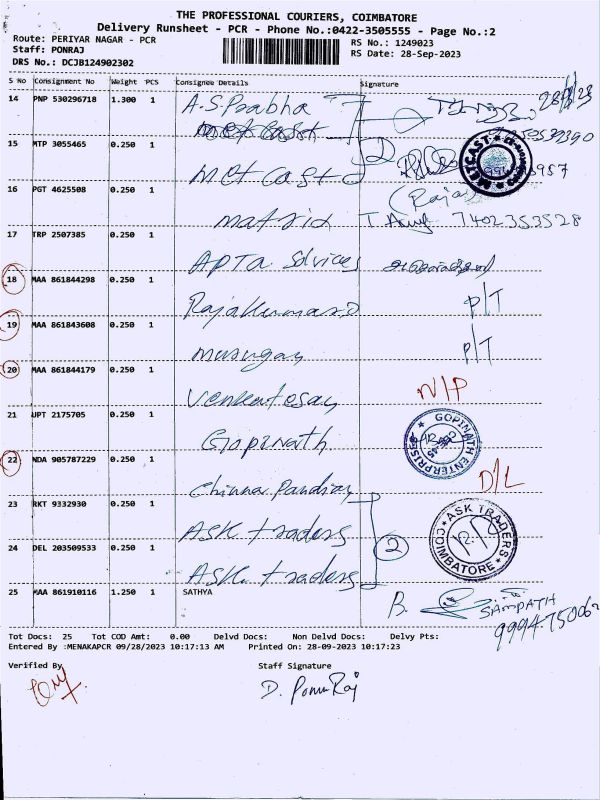 THE PROFESSIONAL COURIERS, COIMBATORE
Delivery Runsheet - PCR - Phone No.:0422-3505555 - Page No.:2
Route: PERIYAR NAGAR - PCR
RS No.: 1249023
Staff: PONRAJ
RS Date: 28-Sep-2023
DRS No.: DCJB124902302
S No Consignment No Weight PCS Consignee Details Signature
14 PNP 530296718 1.300 1 A.S.Prabha
15 MTP 3055465 0.250 1 Met Cast
METCAST
16 PGT 4625508 0.250 1 matrix 7402353528
17 TRP 2507385 0.250 1 APTA Sdvices
18 MAA 861844298 0.250 1 Rajakumar P/T
19 MAA 861843608 0.250 1 murugan P/T
20 MAA 861844179 0.250 1 Venkatesan N/P
21 JPT 2175705 0.250 1 Gopinath
GOPINATH ENTERPRISES
22 NDA 905787229 0.250 1 Chinna Pandian D/L
23 RKT 9332930 0.250 1 ASK traders
24 DEL 203509533 0.250 1 ASK traders 2
ASK TRADERS COIMBATORE
25 MAA 861910116 1.250 1 SATHYA B. SAMPATH
Tot Docs: 25 Tot COD Amt: 0.00 Delvd Docs: Non Delvd Docs: Delvy Pts:
Entered By :MENAKAPCR 09/28/2023 10:17:13 AM Printed On: 28-09-2023 10:17:23
Verified By
Staff Signature
D. PonnRaj